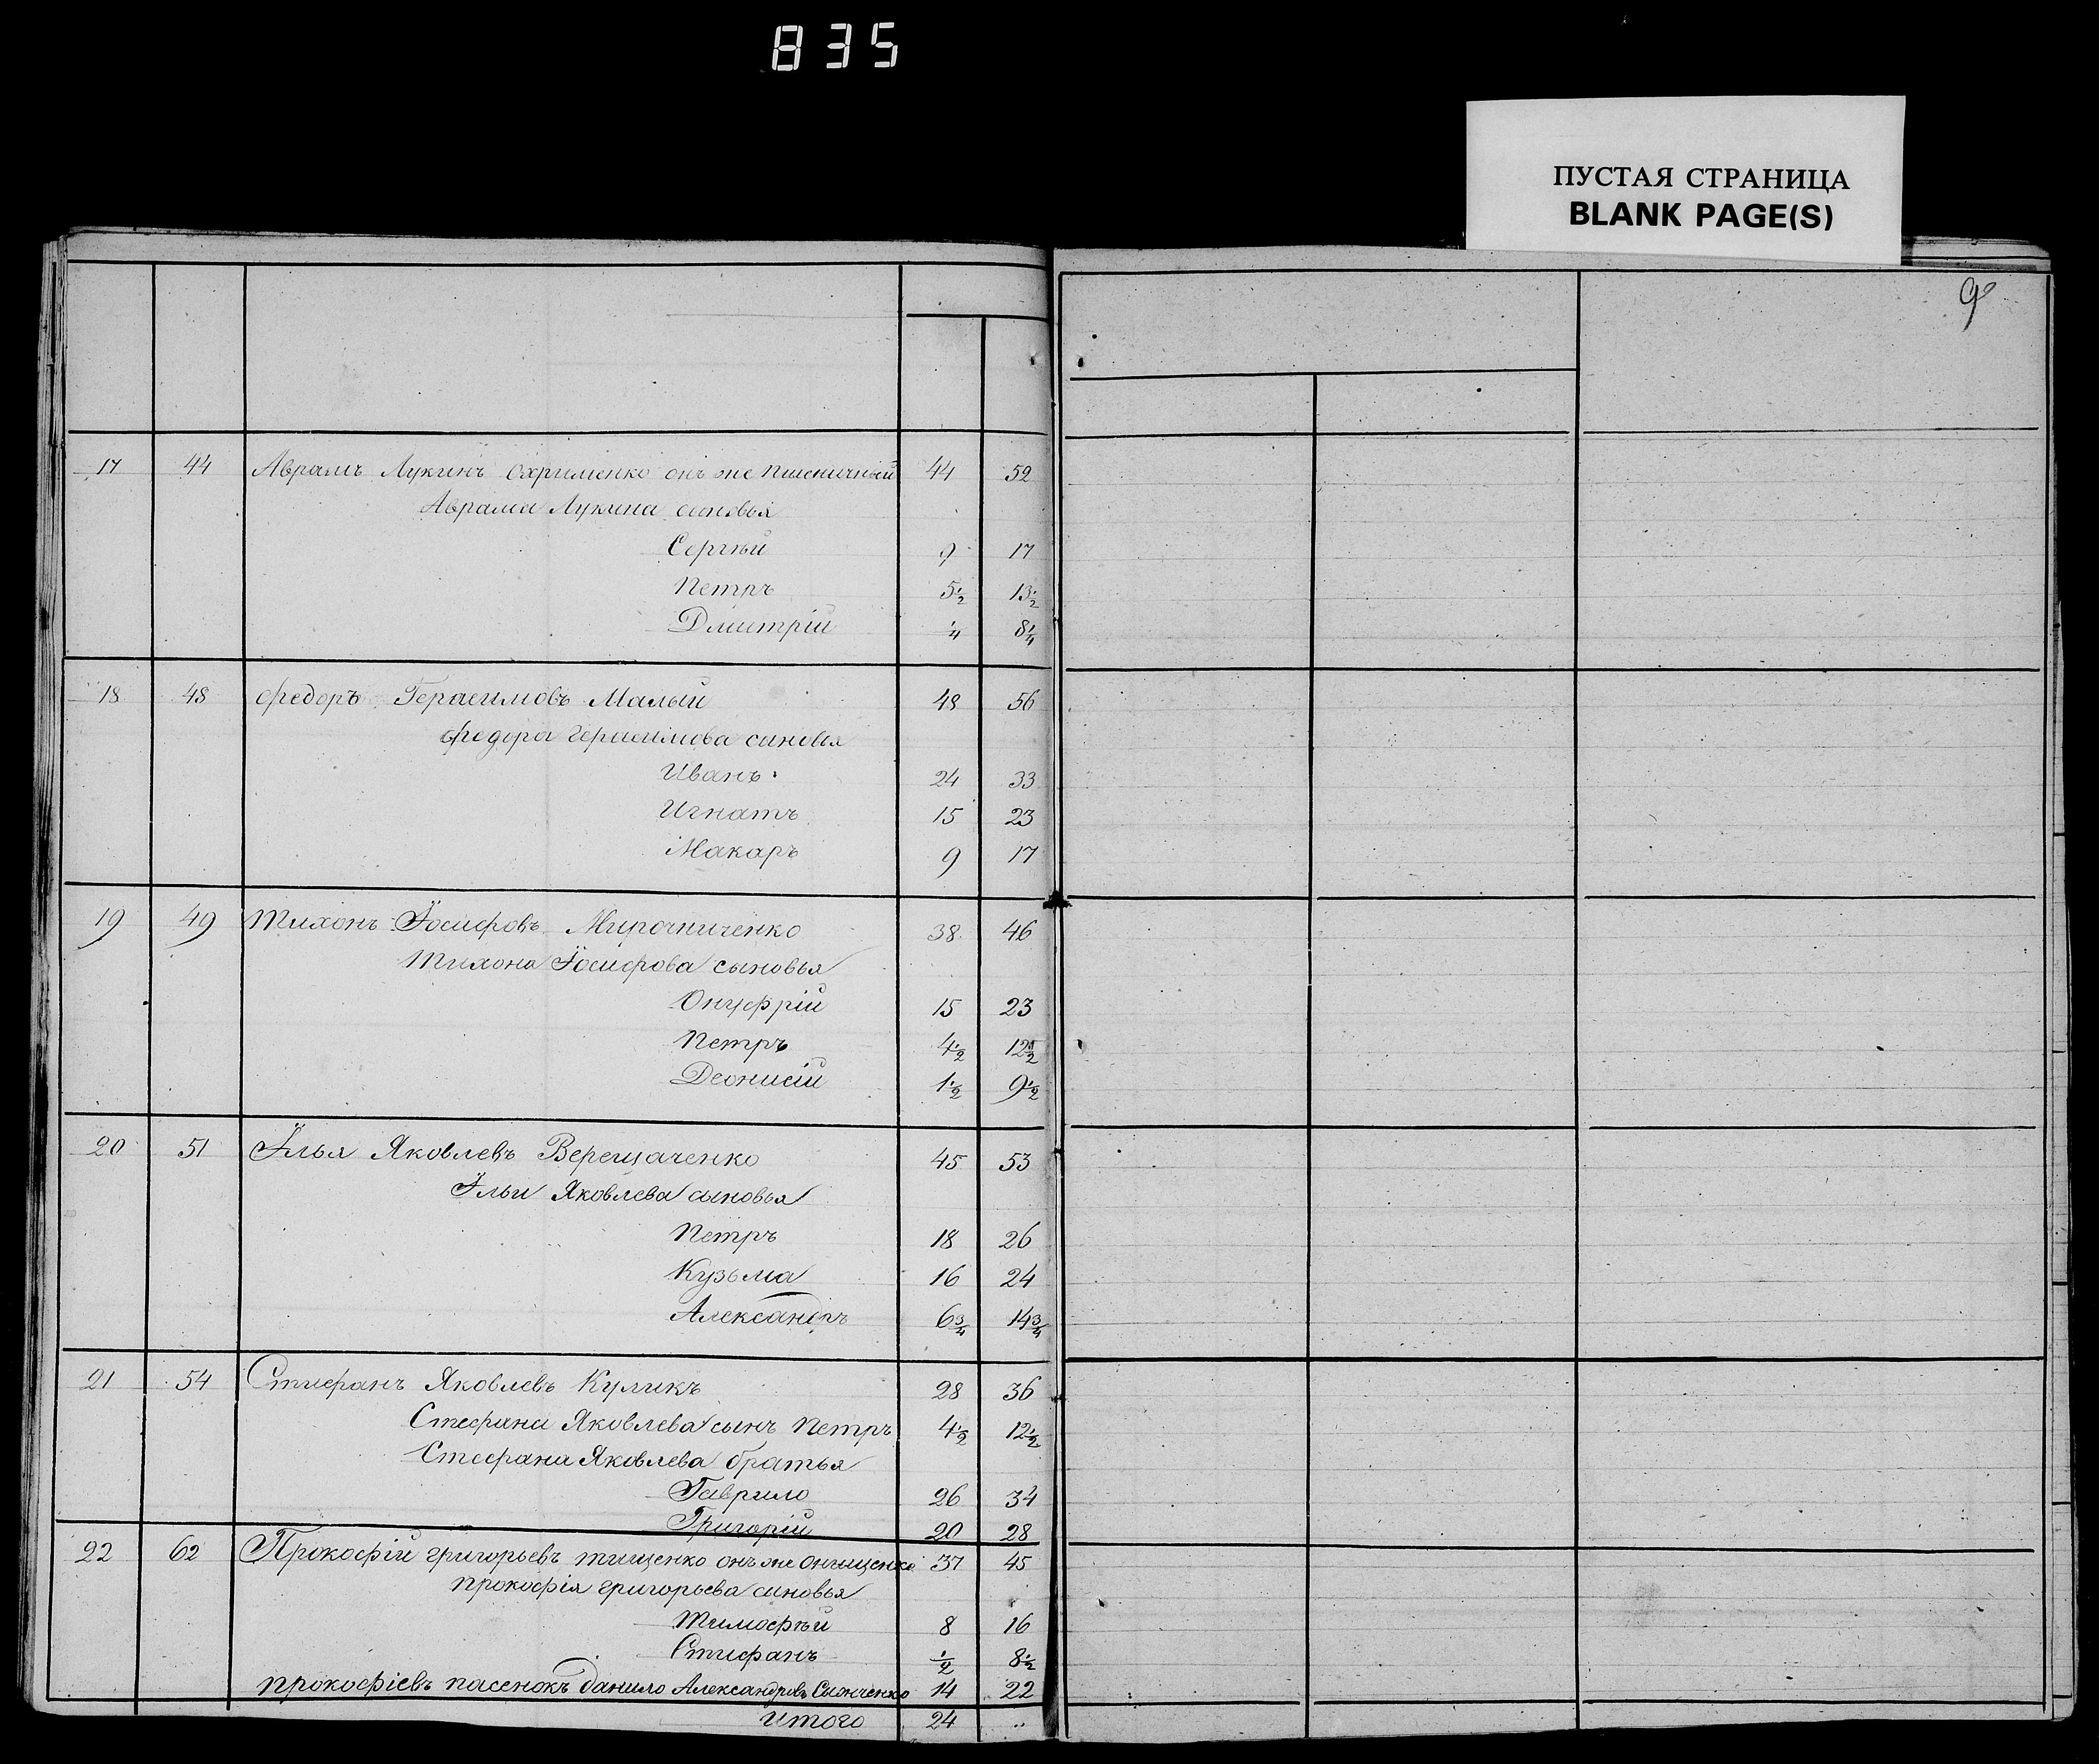 835
ПУСТАЯ СТРАНИЦА
BLANK PAGE(S)
9
17 44 Аврамъ Лукинъ Охрименко онъ же Пшеничный 44 52
Аврама Лукина сыновья
Сергѣй 9 17
Петръ 5½ 13½
Дмитрій ¼ 8¼
18 48 Федоръ Герасимовъ Малый 48 56
Федора Герасимова сыновья
Иванъ 24 33
Игнатъ 15 23
Макаръ 9 17
19 49 Тихонъ Іосифовъ Мирочниченко 38 46
Тихона Іосифова сыновья
Онуфрій 15 23
Петръ 4½ 12½
Деонисій 1½ 9½
20 51 Илья Яковлевъ Верещаченко 45 53
Ильи Яковлева сыновья
Петръ 18 26
Кузьма 16 24
Александръ 6¾ 14¾
21 54 Стефанъ Яковлевъ Куликъ 28 36
Стефана Яковлева сынъ Петръ 4½ 12½
Стефана Яковлева братья
Гаврило 26 34
Григорій 20 28
22 62 Прокофій григорьевъ тищенко онъ же Онищенко 37 45
прокофія григорьева сыновья
Тимофѣй 8 16
Стефанъ ½ 8½
прокофіевъ пасенокъ данило Александровъ 14 22
Итого 24 ..